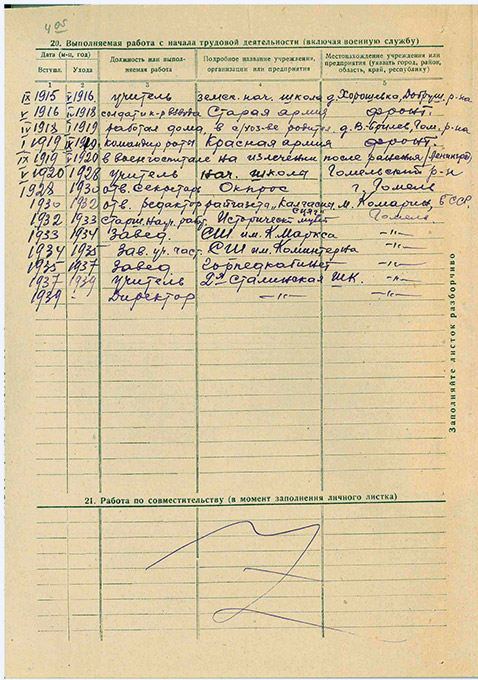 405
20. Выполняемая работа с начала трудовой деятельности (включая военную службу)
Дата (м-ц, год)
Должность или выпол-
няемая работа
Подробное название учреждения,
организации или предприятия
Местонахождение учреждения или
предприятия (указать город, район,
область, край, республику)
Вступл. Ухода
1 2 3 4 5
IX 1915 V 1916 учитель земск. нач. школа д. Хорошевка, Добруш. р-на
V 1916 1918 солдат и к-р взвода Старая армия фронт.
IV 1918 I 1919 работал дома, в с/хоз-ве родител. д. В-Брилев, Гом. р-на
I 1919 командир роты Красная армия фронт.
IX 1919 V 1920 в военгоспитале на излечении после ранения Ленинград
V 1920 1928 учитель нач. школа Гомельский р-н
1928 1930 отв. секретарь Окпрос г. Гомель
1930 1932 отв. редактор райгазета м. Комарин, БССР,
1932 1933 Старш. науч. раб. Историческ. музей Гомель
1933 1934 Завед. СШ им. К. Маркса -"-
1934 1935 Зав. уч. част. СШ им. Коминтерна -"-
1935 1937 Завед. Горпедкабинет -"-
1937 1939 Учитель 2я Сталинская шк. -"-
1939 - Директор -"- -"-
Заполняйте листок разборчиво
21. Работа по совместительству (в момент заполнения личного листка)